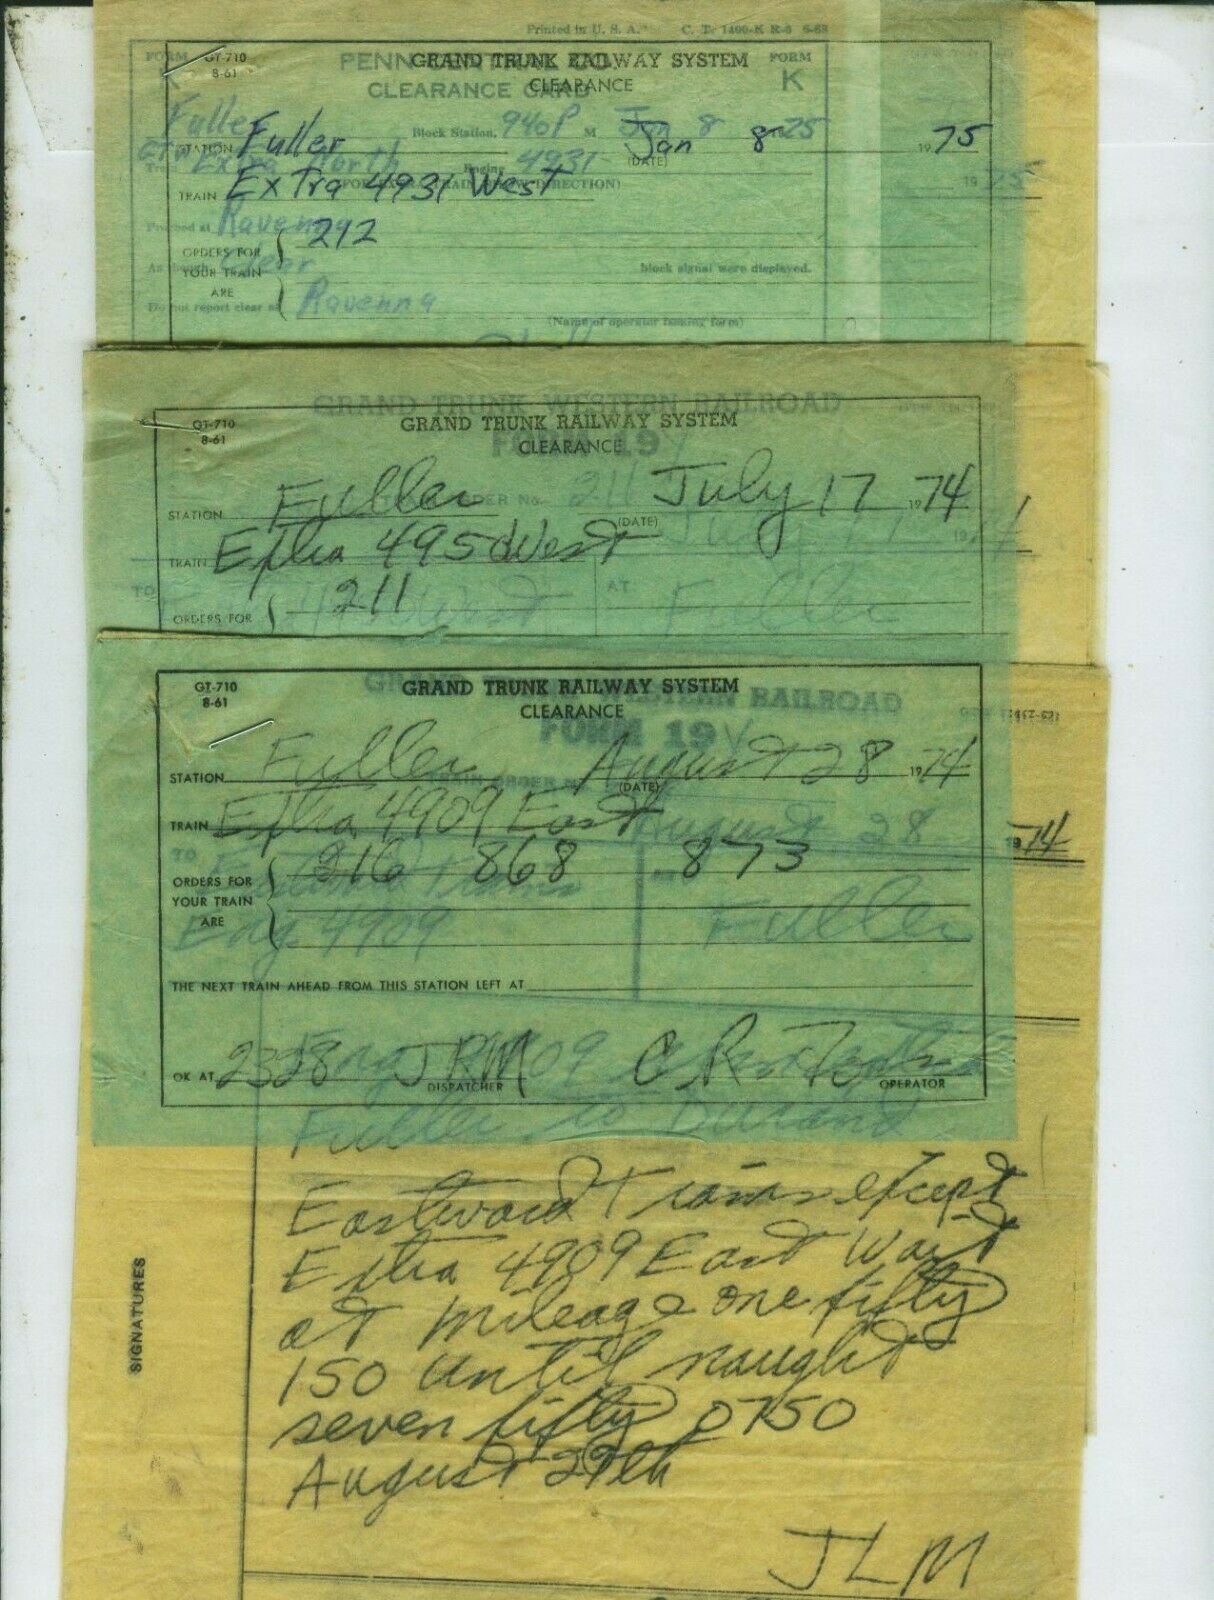 Printed in U. S. A. C. T. 1400-K R-8 6-68
FORM K
GT-710
8-61
GRAND TRUNK RAILWAY SYSTEM
CLEARANCE
PENN
CLEARANCE CARD
FORM K
Fuller Block Station, 940P M Jan 8 1975
STATION Fuller Jan 8 1975
(DATE)
Extra North Engine 4931
TRAIN Extra 4931 West
DIRECTION)
Ravenna
ORDERS FOR YOUR TRAIN ARE 212
Clear
block signal were displayed.
Do not report clear at Ravenna
(Name of operator taking form)
GRAND TRUNK WESTERN RAILROAD
GT-710
8-61
GRAND TRUNK RAILWAY SYSTEM
CLEARANCE
FORM 19 Y
ORDER No. 211
STATION Fuller July 17 1974
(DATE)
July 17 1974
TRAIN Extra 4950 West
TO West AT Fuller
ORDERS FOR 211
GT-710
8-61
GRAND TRUNK RAILWAY SYSTEM
CLEARANCE
GRAND WESTERN RAILROAD
FORM 19 Y
STATION Fuller August 28 1974
(DATE)
TRAIN Extra 4909 East
August 28 1974
TO Eastward Trains
ORDERS FOR YOUR TRAIN ARE 216 868 873
Eng 4909 Fuller
THE NEXT TRAIN AHEAD FROM THIS STATION LEFT AT
Eng 4909
OK AT 2328 JRM DISPATCHER C R OPERATOR
Fuller to Durand
Eastward Trains except
Extra 4909 East Wait
at Mileage one fifty
150 Until naught
seven fifty 0750
August 29th
SIGNATURES
JLM